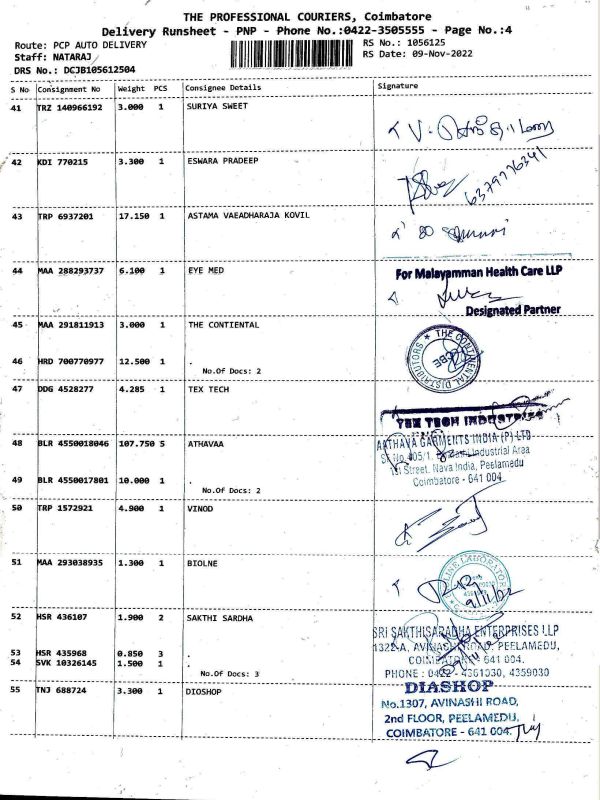 THE PROFESSIONAL COURIERS, Coimbatore
Delivery Runsheet - PNP - Phone No.:0422-3505555 - Page No.:4
Route: PCP AUTO DELIVERY RS No.: 1056125
Staff: NATARAJ RS Date: 09-Nov-2022
DRS No.: DCJB105612504
S No Consignment No Weight PCS Consignee Details Signature
41 TRZ 140966192 3.000 1 SURIYA SWEET
42 KDI 770215 3.300 1 ESWARA PRADEEP
6379776341
43 TRP 6937201 17.150 1 ASTAMA VAEADHARAJA KOVIL
44 MAA 288293737 6.100 1 EYE MED For Malayamman Health Care LLP
Designated Partner
45 MAA 291811913 3.000 1 THE CONTIENTAL
THE CONTINENTAL DISTRIBUTORS
CBE
46 HRD 700770977 12.500 1 .
No.Of Docs: 2
47 DDG 4528277 4.285 1 TEX TECH
TEX TECH INDUSTRIES
48 BLR 4550018046 107.750 5 ATHAVAA AATHAVA GARMENTS INDIA (P) LTD
Industrial Area
1st Street, Nava India, Peelamedu
Coimbatore - 641 004
49 BLR 4550017801 10.000 1 .
No.Of Docs: 2
50 TRP 1572921 4.900 1 VINOD
51 MAA 293038935 1.300 1 BIOLNE
9/11/22
52 HSR 436107 1.900 2 SAKTHI SARDHA SRI SAKTHISARADHA ENTERPRISES LLP
1322-A, AVINASHI ROAD, PEELAMEDU,
53 HSR 435968 0.850 3 COIMBATORE - 641 004.
54 SVK 10326145 1.500 1 .
No.Of Docs: 3 PHONE : 0422 - 4361030, 4359030
55 TNJ 688724 3.300 1 DIOSHOP DIASHOP
No.1307, AVINASHI ROAD,
2nd FLOOR, PEELAMEDU,
COIMBATORE - 641 004.